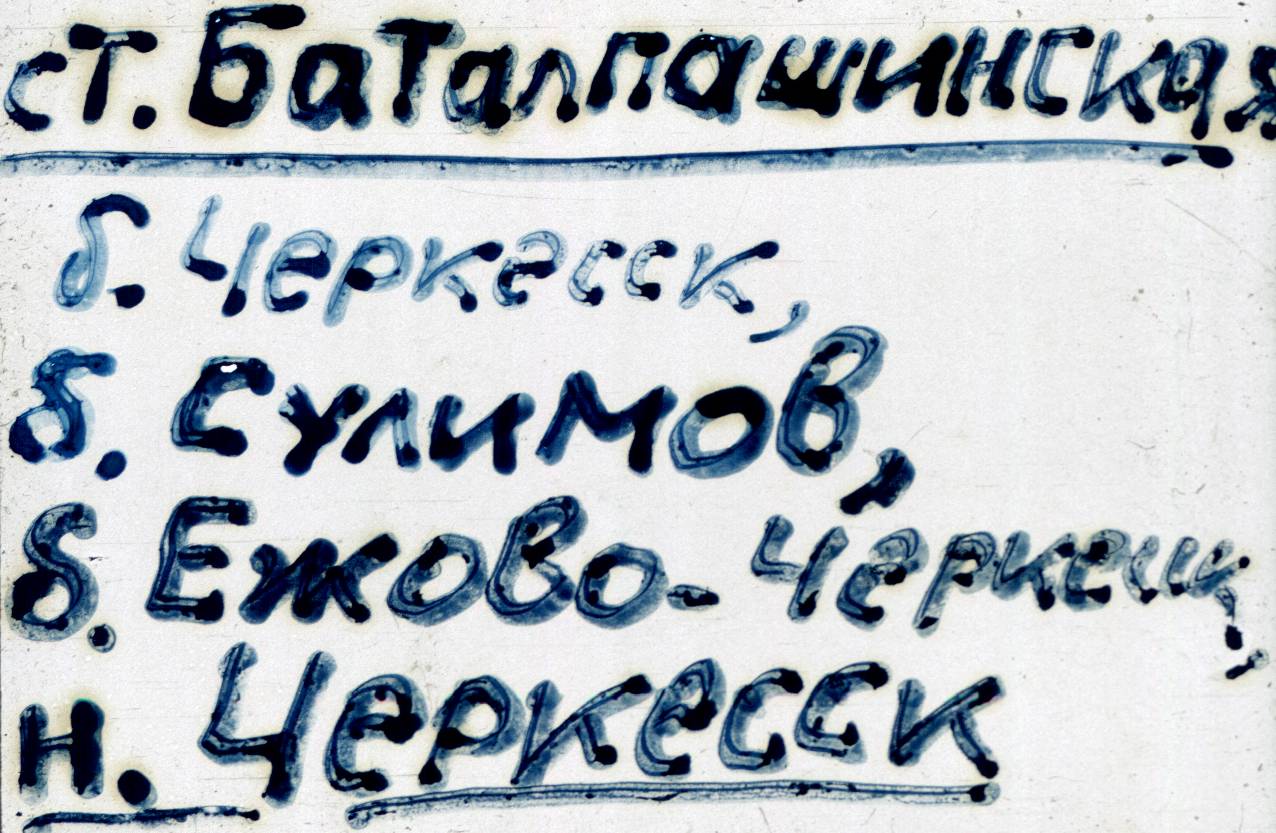 ст. Баталпашинская
б. Черкесск,
б. Сулимов,
б. Ежово-Черкесск,
н. Черкесск